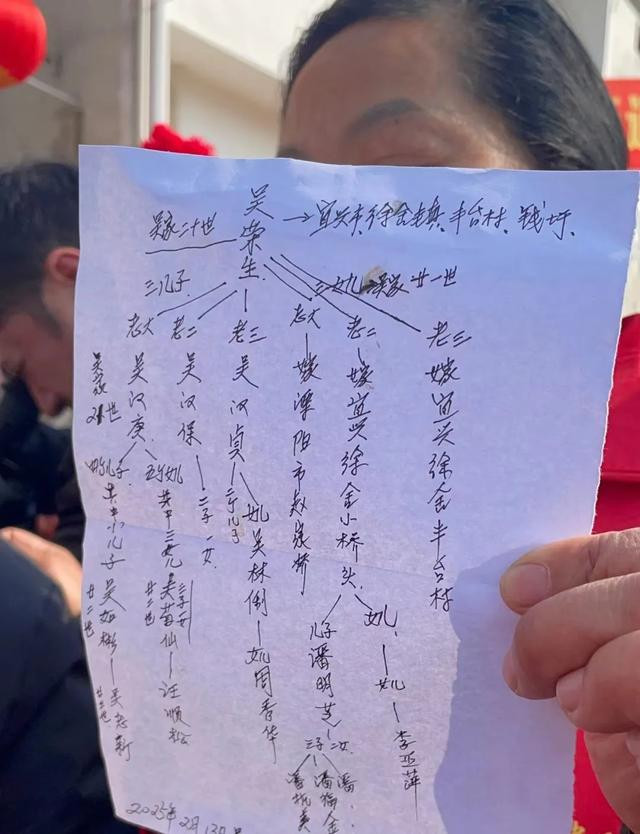 吴荣生→宜兴市徐舍镇、丰台村、钱圩、
吴家二十世
三儿子
三女儿 吴家廿一世
老大
老二
老三
老大
老二
老三
吴家21世
吴汉庚
吴汉保
吴汉贞
嫁溧阳市赵家桥
嫁宜兴徐舍小桥头
嫁宜兴徐舍丰台村
四个儿子
五个女儿
二子一女
二个儿子
女儿吴林倒
其中小儿子
其中三女儿
吴苗仙
汪顺松
廿二世
廿二世
廿三世
吴志新
女儿周香华
儿子潘明芝
女儿
女儿
李亚萍
三子二女
潘
2025年2月13日